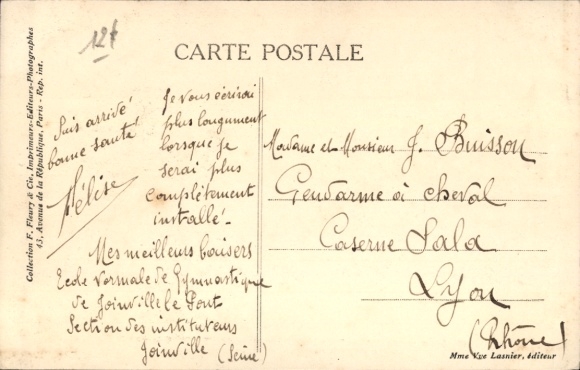 12f
CARTE POSTALE
Collection F. Fleury & Cie, Imprimeurs-Editeurs-Photographes
43, Avenue de la République, Paris - Rep. int.
Suis arrivé
bonne santé
Félise
Je vous écrirai
plus longument
lorsque je
serai plus
complètement
installé -
Mes meilleurs baisers
Ecole normale de Gymnastique
de Joinville le Pont
Section des instituteurs
Joinville (Seine)
Madame et Monsieur J. Buisson
Gendarme à cheval
Caserne Sala
Lyon
(Rhône)
Mme Vve Lasnier, éditeur